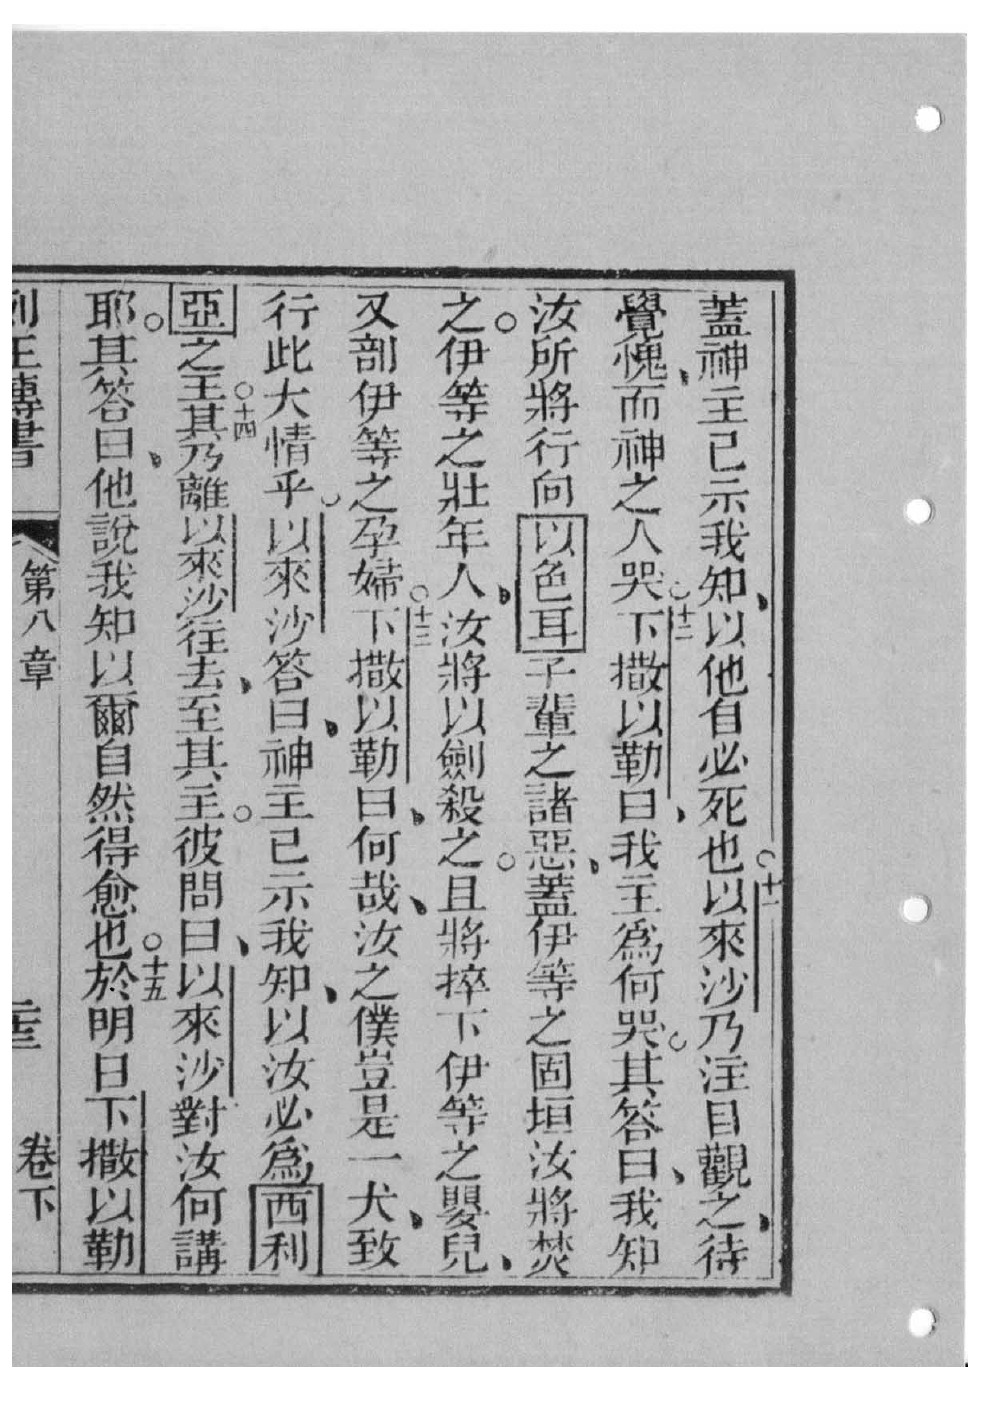 蓋神主已示我知、以他自必死也○十一以來沙乃注目觀之、待
覺愧、而神之人哭○十二下撒以勒曰、我主爲何哭○其答曰、我知
汝所將行向以色耳子輩之諸惡、蓋伊等之固垣汝將焚
之○伊等之壯年人、汝將以劍殺之○且將捽下伊等之嬰兒、
又剖伊等之孕婦○十三下撒以勒曰、何哉、汝之僕豈是一犬、致
行此大情乎○以來沙答曰、神主已示我知、以汝必爲西利
亞之王○十四其乃離以來沙往去、至其主○彼問曰、以來沙對汝何講
耶○其答曰、他說我知以爾自然得愈也○十五於明日下撒以勒
列王傳書 第八章 卷下